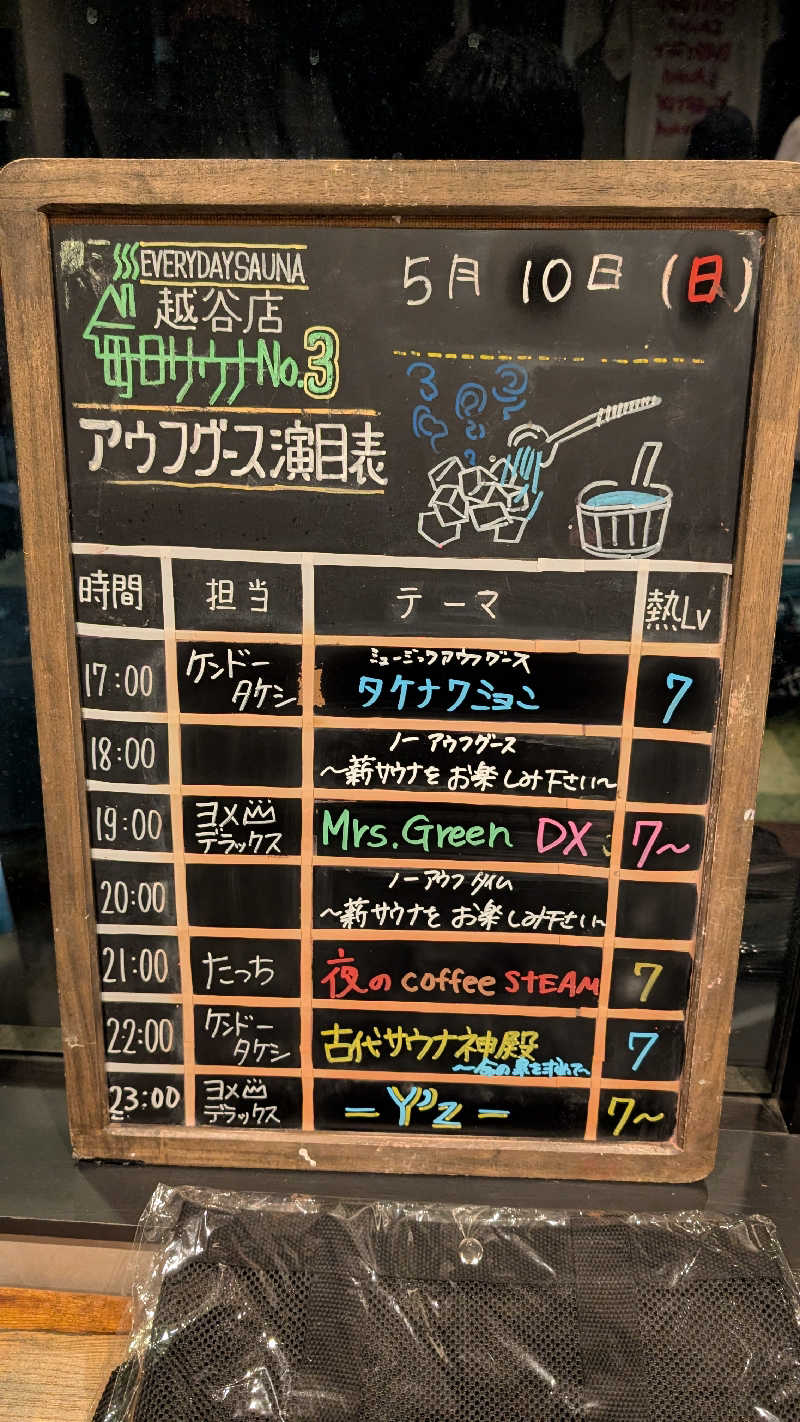 EVERYDAYSAUNA
越谷店
毎日サウナ No.3
アウフグース演目表
5月 10日 (日)
時間 担当 テーマ 熱Lv
17:00 ケンドー タケシ ミュージックアウフグース タケナワミョニ 7
18:00 ノーアウフグース
〜薪サウナを お楽しみ下さい〜
19:00 ヨメ デラックス Mrs.Green DX 7〜
20:00 ノーアウフタイム
〜薪サウナを お楽しみ下さい〜
21:00 たっち 夜の coffee STEAM 7
22:00 ケンドー タケシ 古代サウナ神殿 7
23:00 ヨメ デラックス = Y'z = 7〜